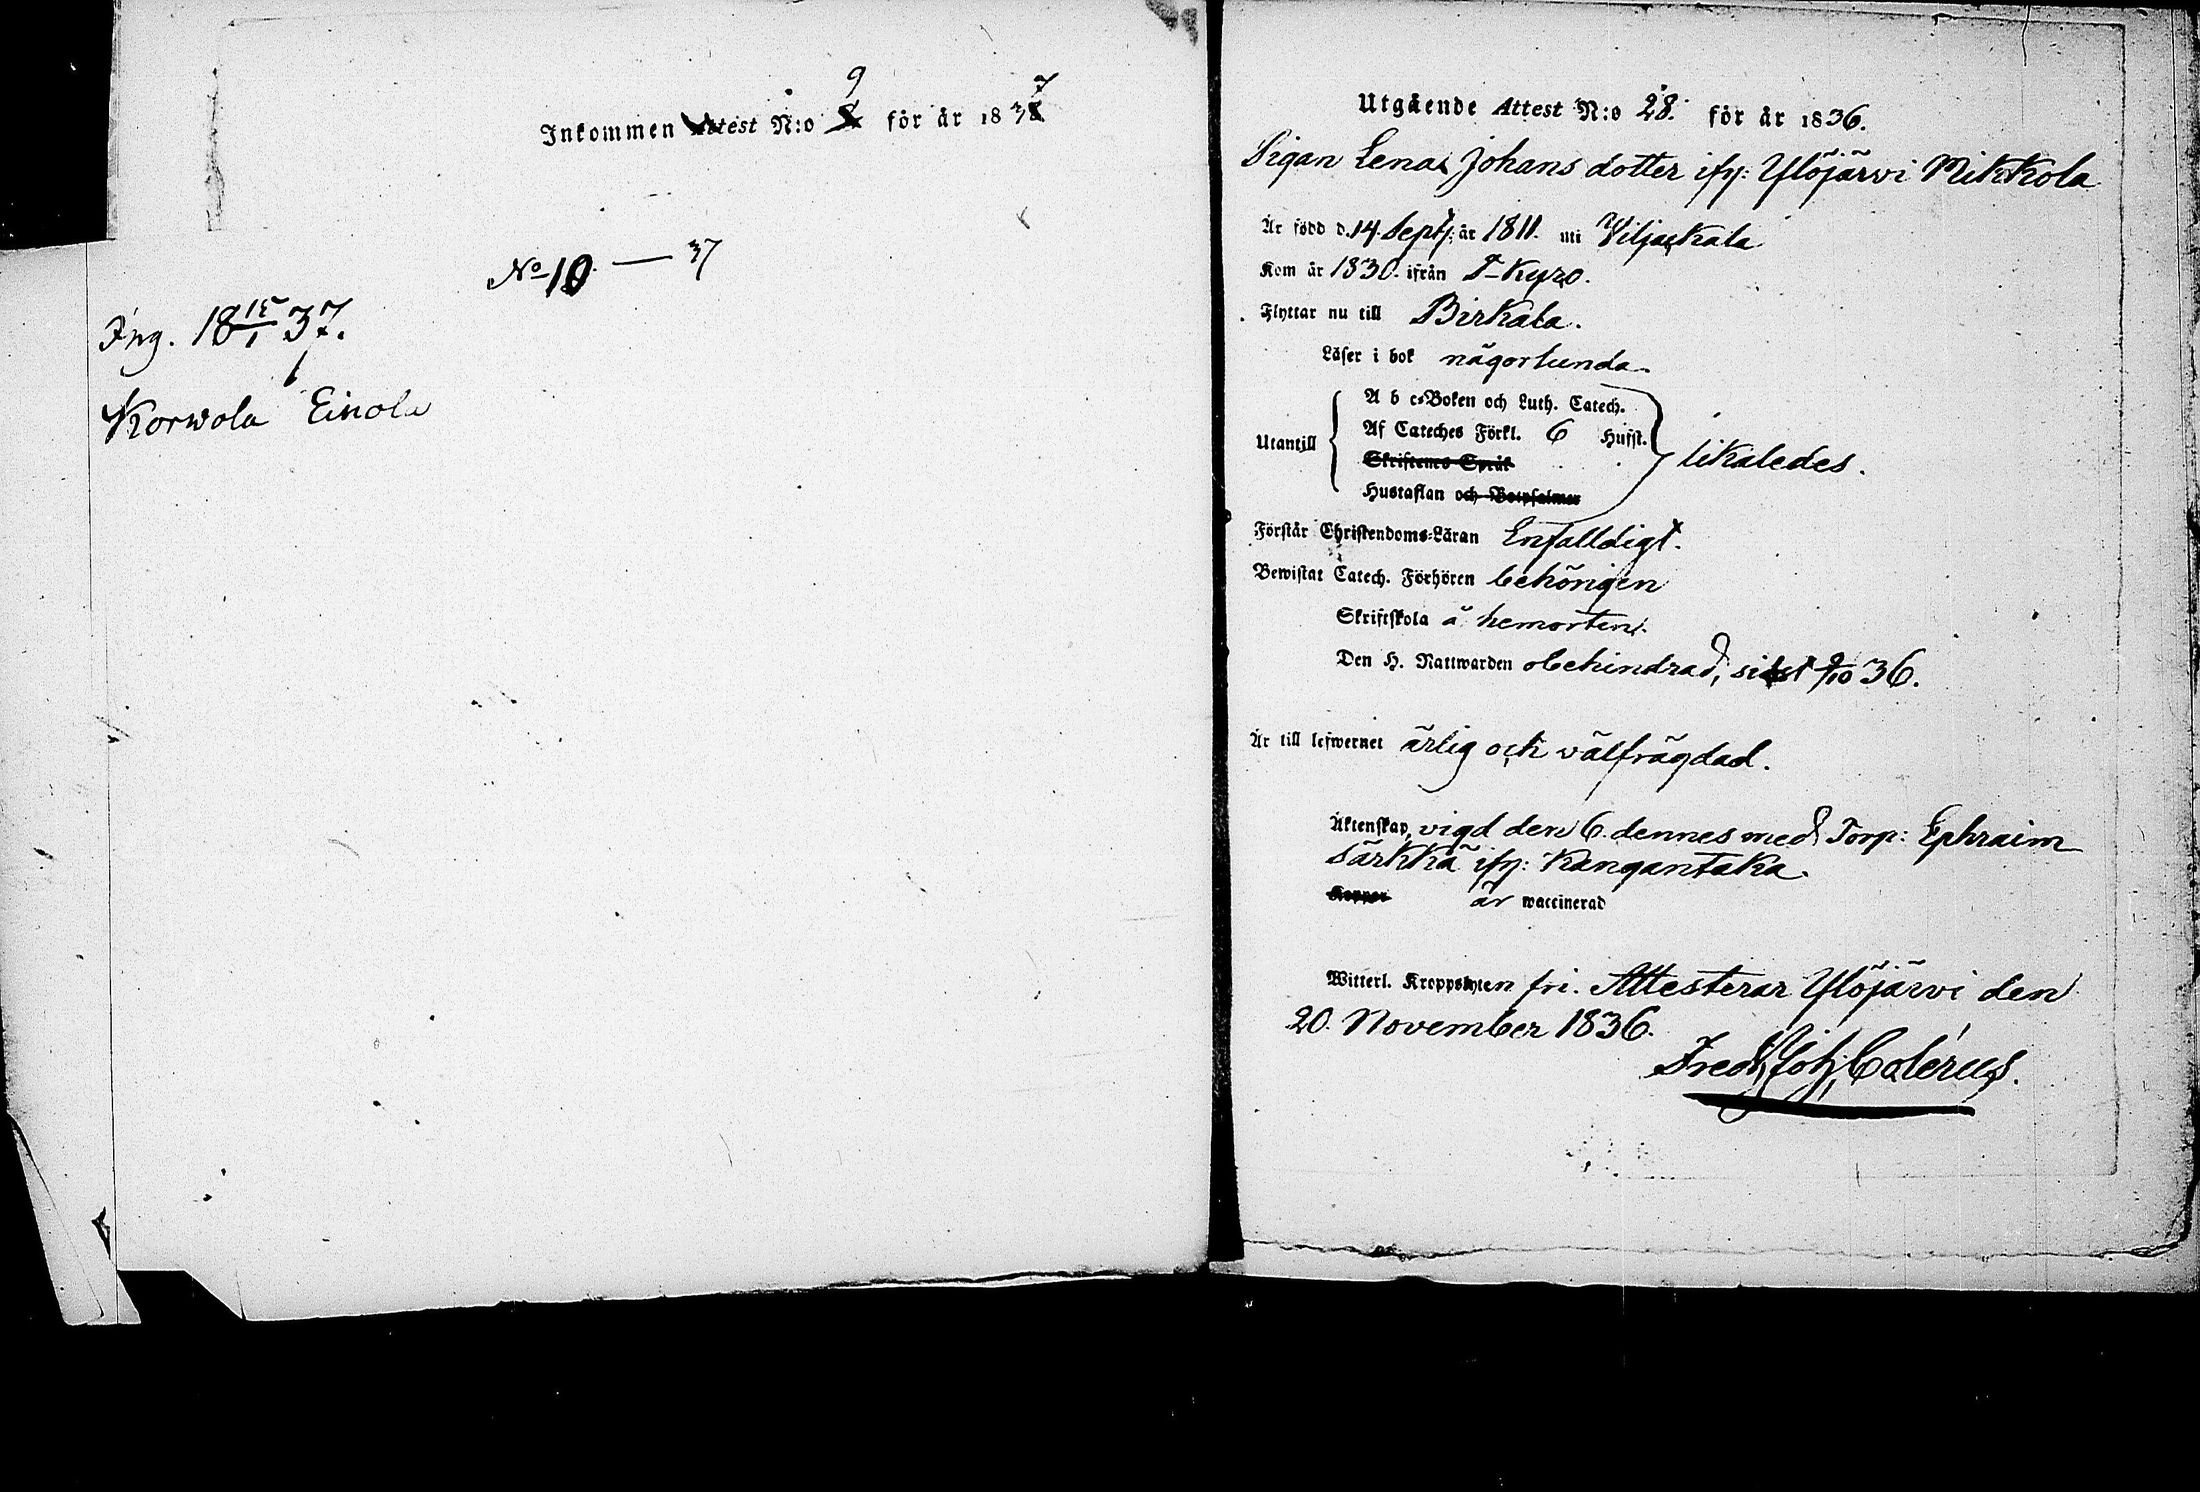 Inkommen Attest N:o 9 för år 1837
No 10 — 37
Ing. 18 15/1 37.
Korwola Einola
Utgående Attest N:o 28. för år 1836.
Pigan Lena Johans dotter ifr: Ylöjärvi Mikkola
Är född d. 14. Sept: år 1811. uti Viljackala
Kom år 1830. ifrån T-Kyro.
Flyttar nu till Birkala.
Läser i bok någorlunda.
A b c-Boken och Luth. Catech.
Af Cateches Förkl. 6 Hufst.
Utantill likaledes.
Skriftenes Språk
Hustaflan och Botpsalmer
Förstår Christendoms-Läran Enfalldigt.
Bewistat Catech. Förhören behörigen
Skriftskola å hemorten.
Den H. Nattwarden obehindrad, sidst 9/10 36.
Är till lefwernet ärlig och välfrägdad.
Äktenskap, vigd den 6. dennes med Torp: Ephraim
Särkkä ifr: Kangantaka.
Koppor är waccinerad
Witterl. Kroppslyten fri. Attesterar Ylöjärvi den
20. November 1836.
Fredr. Joh. Colérus.